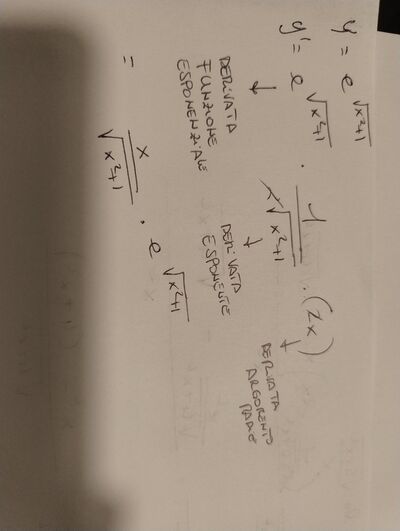 y = e^√(x²+1)
y' = e^√(x²+1) · 1/(2√(x²+1)) · (2x)
↓ ↓ ↓
DERIVATA FUNZIONE ESPONENZIALE
DERIVATA ESPONENTE
DERIVATA ARGOMENTO RADICE
= x/√(x²+1) · e^√(x²+1)